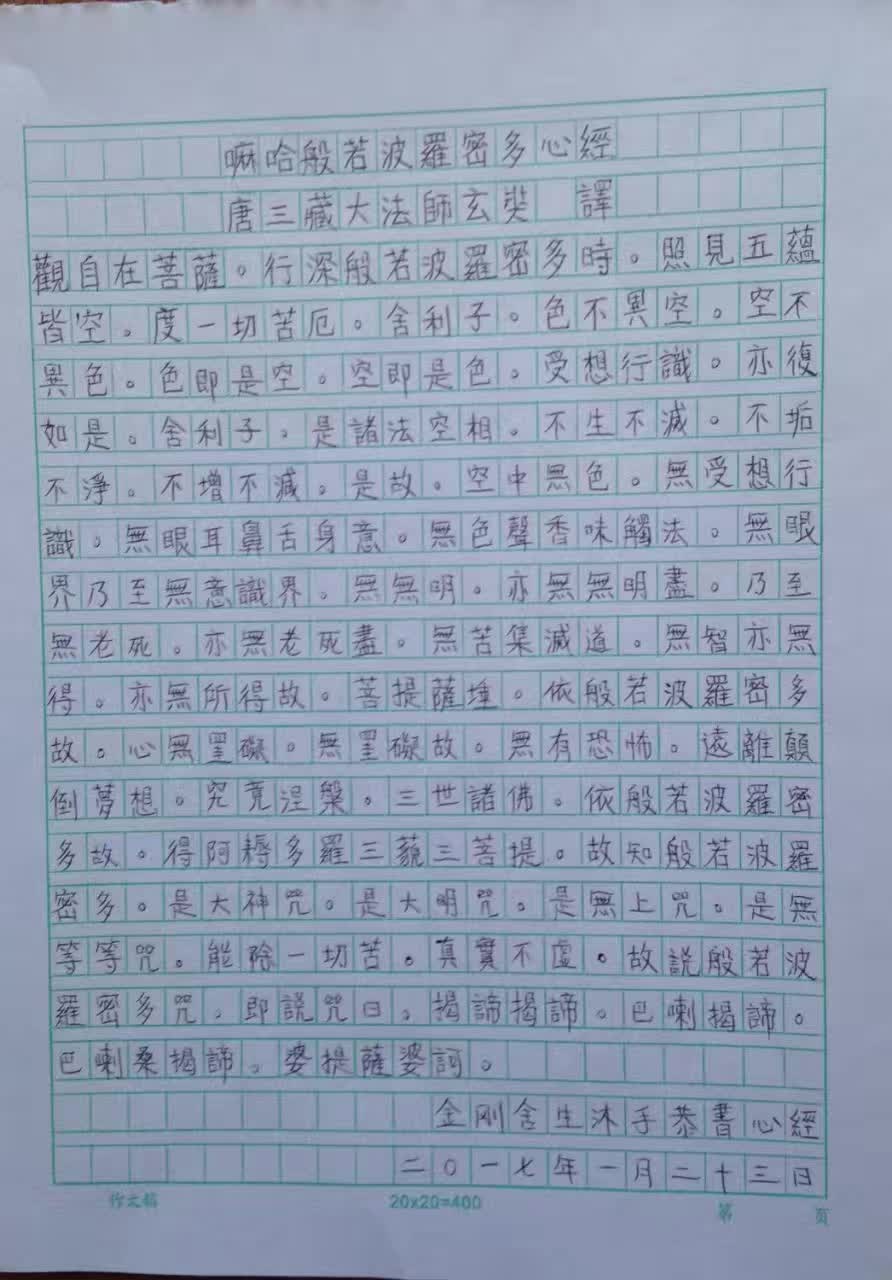 嘛哈般若波羅密多心經
唐三藏大法師玄奘 譯
觀自在菩薩。行深般若波羅密多時。照見五蘊
皆空。度一切苦厄。舍利子。色不異空。空不
異色。色即是空。空即是色。受想行識。亦復
如是。舍利子。是諸法空相。不生不滅。不垢
不淨。不增不減。是故。空中無色。無受想行
識。無眼耳鼻舌身意。無色聲香味觸法。無眼
界乃至無意識界。無無明。亦無無明盡。乃至
無老死。亦無老死盡。無苦集滅道。無智亦無
得。亦無所得故。菩提薩埵。依般若波羅密多
故。心無罣礙。無罣礙故。無有恐怖。遠離顛
倒夢想。究竟涅槃。三世諸佛。依般若波羅密
多故。得阿耨多羅三藐三菩提。故知般若波羅
密多。是大神咒。是大明咒。是無上咒。是無
等等咒。能除一切苦。真實不虛。故說般若波
羅密多咒。即說咒曰。揭諦揭諦。巴喇揭諦。
巴喇桑揭諦。婆提薩婆訶。
金刚舍生沐手恭書心經
二〇一七年一月二十三日
作文稿 20x20=400 第 页